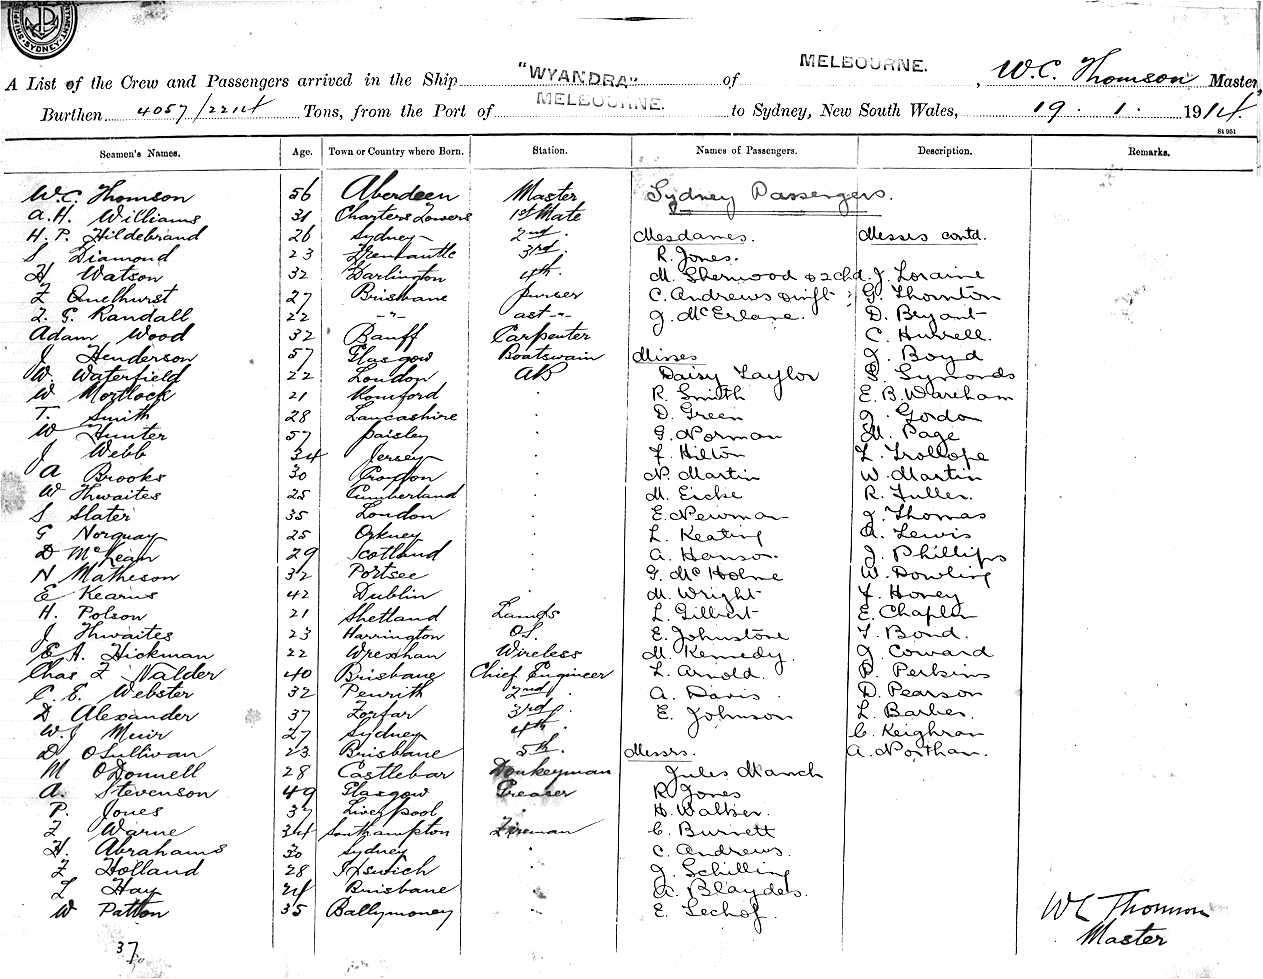 SHIPPING DEPARTMENT. SYDNEY.
A List of the Crew and Passengers arrived in the Ship "WYANDRA" of MELBOURNE. , W.C. Thomson Master,
Burthen 4057/2214 Tons, from the Port of MELBOURNE. to Sydney, New South Wales, 19. 1. 1914.
St 951
Seamen's Names. Age. Town or Country where Born. Station. Names of Passengers. Description. Remarks.
W.C. Thomson 56 Aberdeen Master Sydney Passengers.
A.H. Williams 31 Charters Towers 1st Mate
H. P. Hildebrand 26 Sydney 2nd. Mesdames. Messrs contd.
S Diamond 23 Fremantle 3rd. R. Jones.
H Watson 32 Darlington 4th. M. Sherwood & 2 chd. J. Loraine
27 Brisbane purser C. Andrews & inft G. Thornton
G. Randall 22 -"- ast -"- J. McErlane. D. Bryant
Adam Wood 32 Banff Carpenter C. Hurrell.
J Henderson 57 Glasgow Boatswain Misses J. Boyd
W. Waterfield 22 London AB Daisy Taylor Symonds
W Mortlock 21 Romford R. Smith E. B. Wareham
T. Smith 28 Lancashire D. Green J. Gordon
W Hunter 57 Paisley G. Norman M. Page
J Webb 34 Jersey F. Hilton L. Trollope
A Brooks 30 Croydon N. Martin W. Martin
W Thwaites 25 Cumberland M. Eicke R. Fuller.
S Slater 35 London E. Newman J. Thomas
G Norquay 25 Orkney L. Keating A. Lewis
D McLean 29 Scotland A. Hanson. J. Phillips
N Matheson 32 Portsee G. McHolme W. Dowling
E Kearns 42 Dublin M. Wright F. Honey
H. Polson 21 Shetland Lamps L. Gilbert E. Chaplin
J Thwaites 23 Harrington O.S. E. Johnstone F. Bond.
E A. Hickman 22 Wrexham Wireless M. Kennedy. J. Coward
Chas F. Nalder 40 Brisbane Chief Engineer L. Arnold. P. Perkins
C. E. Webster 32 Penrith 2nd A. Davis. D. Pearson
D Alexander 37 Forfar 3rd. E. Johnson L. Barber.
W.J Muir 27 Sydney 4th. C. Keighran
D O'Sullivan 23 Brisbane 5th. Messrs. A. Northan.
M O'Donnell 28 Castlebar Donkeyman Jules
A. Stevenson 49 Glasgow Greaser R. Jones
P. Jones 37 Liverpool H. Walker.
F Warne 34 Southampton Fireman C. Burnett
H. Abrahams 30 Sydney C. Andrews.
F Holland 28 Ipswich J. Schilling
L Hay 24 Brisbane A. Blaydes.
W Patton 35 Ballymoney E. Lechof.
WC Thomson
Master
37